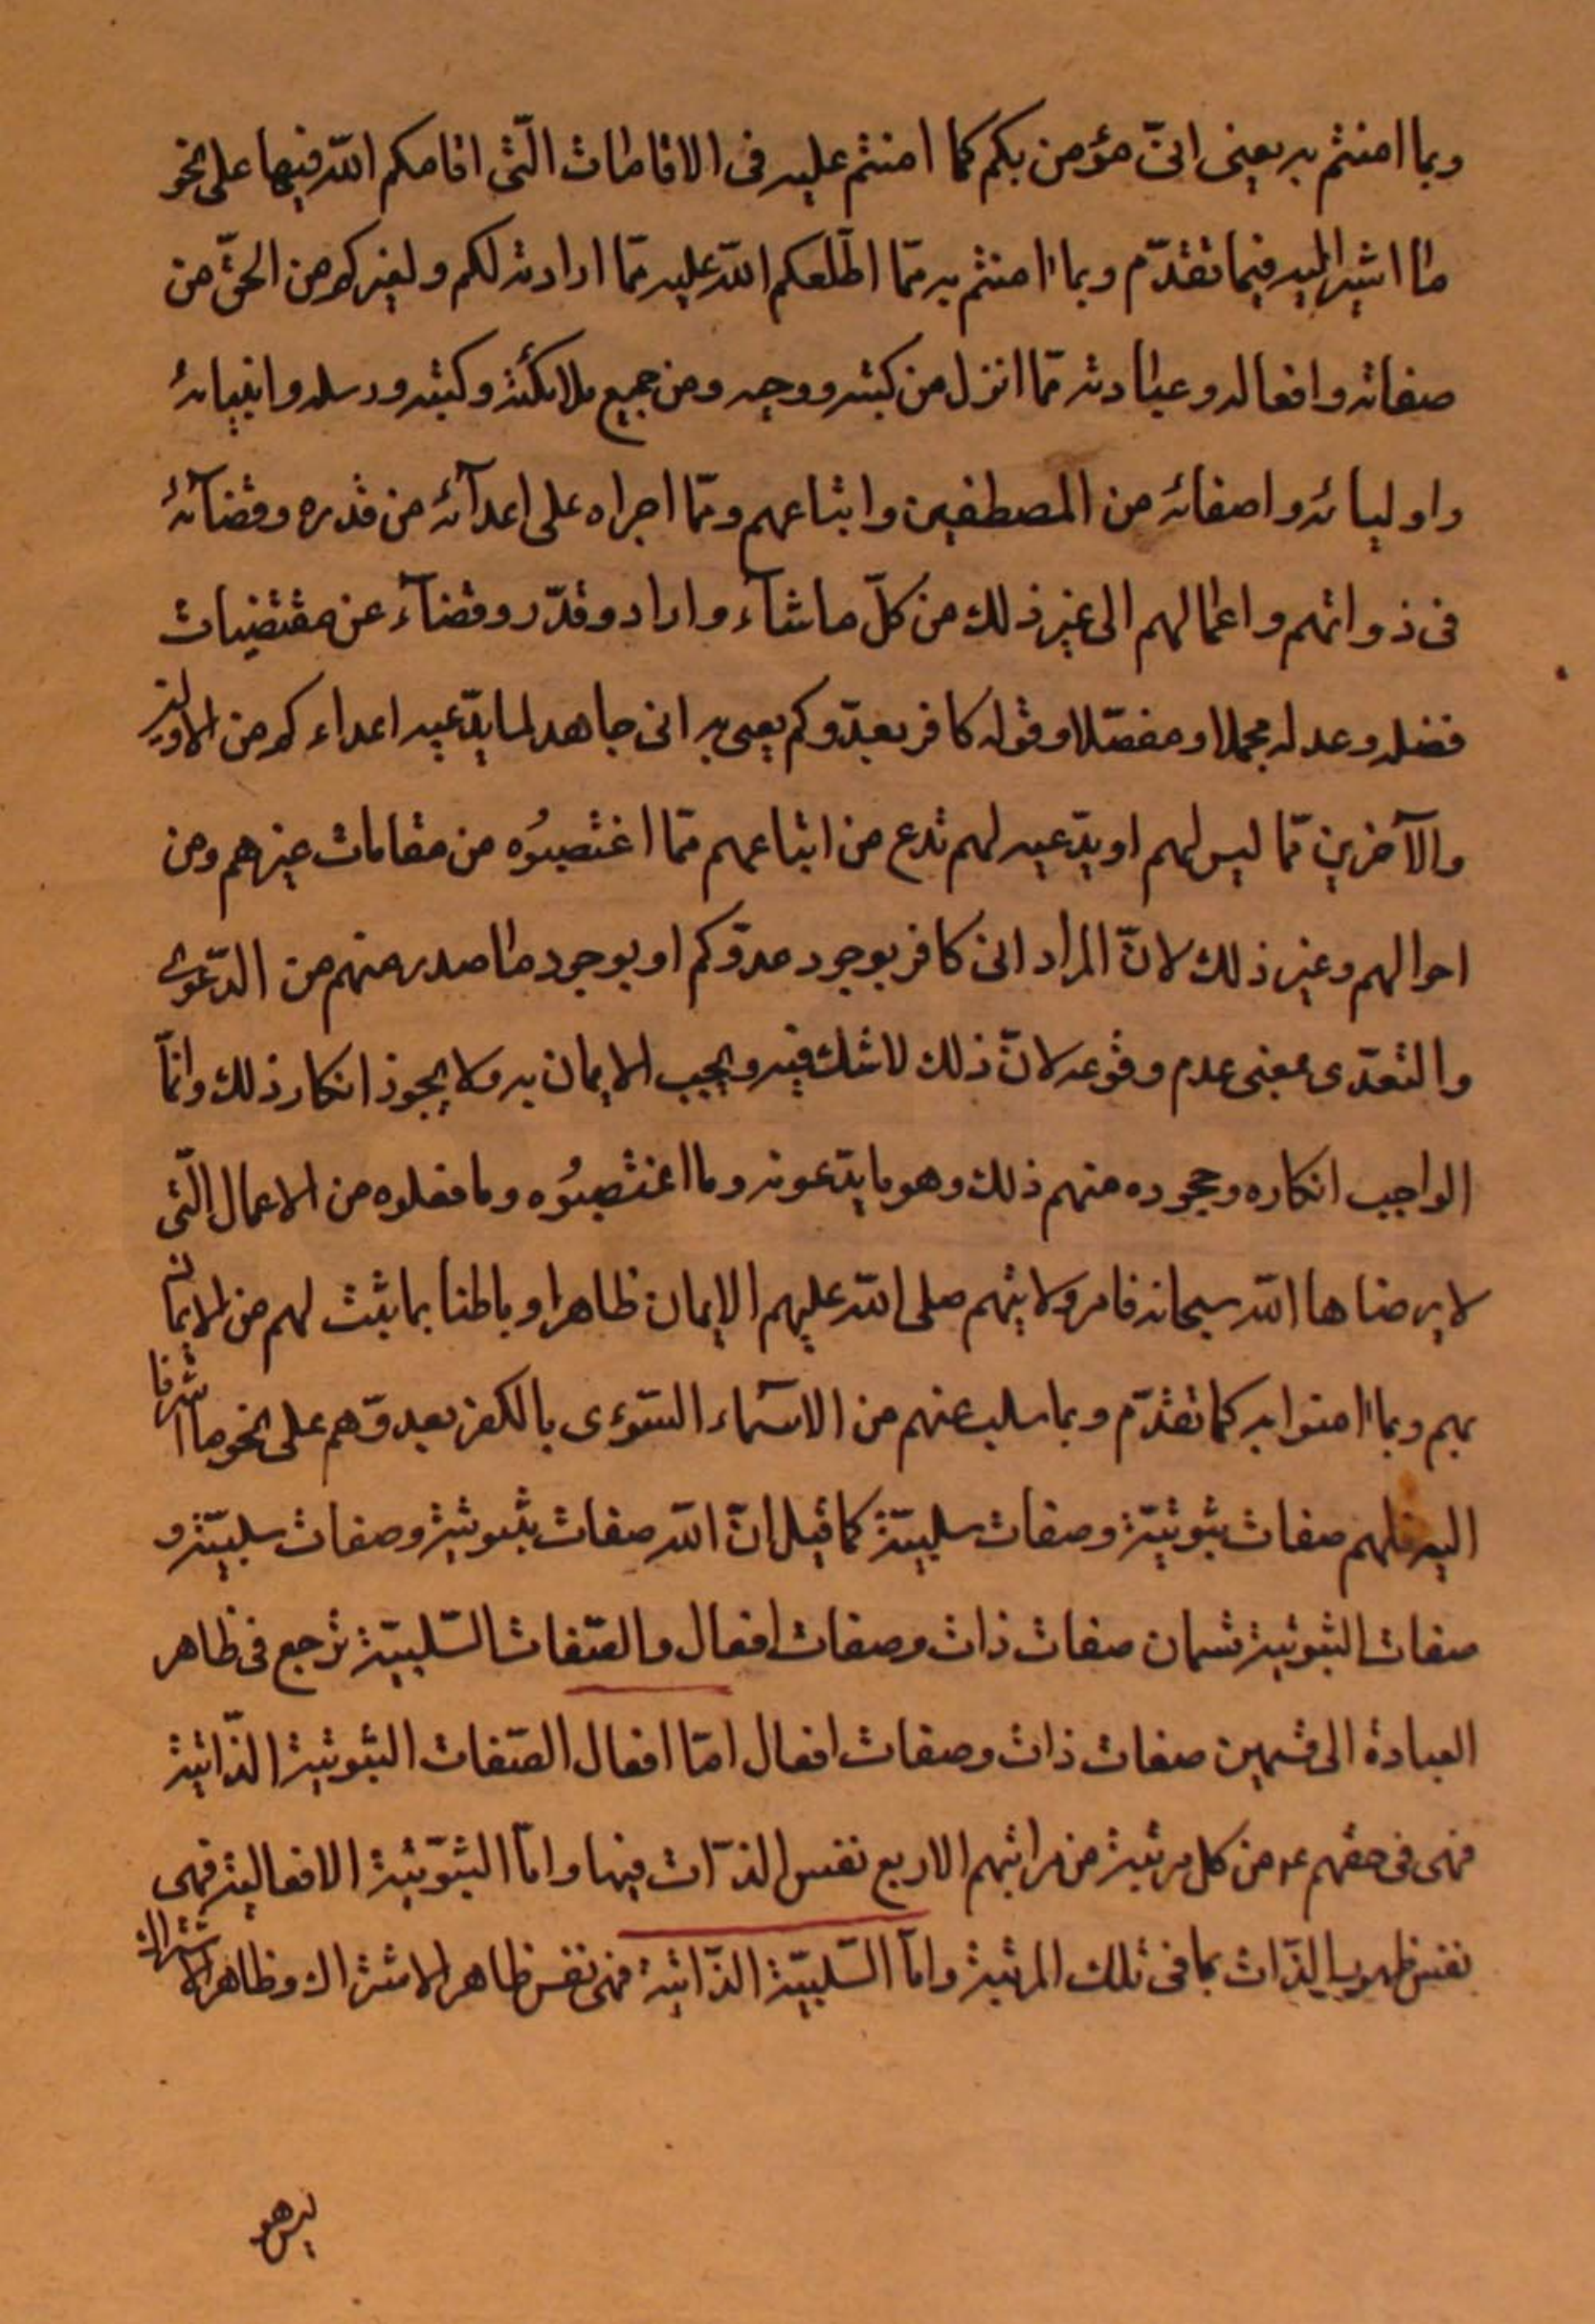 وبما امنتم به يعنى انّى مؤمن بكم كما امنتم عليه فى الاقامات الّتى اقامكم الله فيها على نحو
ما اشير اليه فيما تقدّم وبما امنتم به ممّا اطّلعكم الله عليه ممّا ارادته لكم ولغيركم من الحقّ من
صفاته وافعاله وعباداته ممّا انزل من كتبه ووحيه ومن جميع ملائكته وكتبه ورسله وانبيائه
واوليائه واصفائه من المصطفين واتباعهم وممّا اجراه على اعدآئه من قدره وقضآئه
فى ذواتهم واعمالهم الى غير ذلك من كلّ ما شآء واراد وقدّر وقضآء عن مقتضيات
فضله وعدله مجملا ومفصّلا وقوله كافر بعدّوكم يعنى به انى جاهد لما يدّعيه اعداءكم من الاولين
والآخرين ممّا ليس لهم او يدّعيه لهم تدع من اتباعهم ممّا اغتصبوُه من مقامات غيرهم ومن
احوالهم وغير ذلك لانّ المراد انى كافر بوجود عدوّكم او بوجود ما صدر منهم من الدّعوى
والتعدّى بمعنى عدم وقوعه لانّ ذلك لا شك فيه ويجب الايمان به ولا يجوز انكار ذلك وانمّا
الواجب انكاره وجحوده منهم ذلك وهو ما يدّعونه وما اغتصبوُه وما فعلوه من الاعمال الّتى
لا يرضاها الله سبحانه فامر ولايتهم صلى الله عليهم الايمان ظاهرا وباطنا بما يثبت لهم من الايمان
بهم وبما امنوا به كما تقدّم وبما سلب عنهم من الاسمآء السّوءى بالكفر بعدوّهم على نحو ما اشرنا
اليه فلهم صفات ثبوتيّة وصفات سلبيّة كما قيل انّ الله صفات ثبوتية وصفات سلبيّة و
صفات الثبوتية قسمان صفات ذات وصفات افعال والصّفات السّلبيّة ترجع فى ظاهر
العبادة الى قسمين صفات ذات وصفات افعال امّا افعال الصّفات الثبوتية الذّاتية
فهى فى حقهم ع من كل مرتبة من مراتبهم الاربع نفس الذّات فيها وامّا الثبوّتية الافعالية فهى
نفس ظهور الذّات بما فى تلك المرتبة وامّا السّلبيّة الذّاتية فهى نفس ظاهر الاشتراك وظاهر الاشتراك
ليس هو